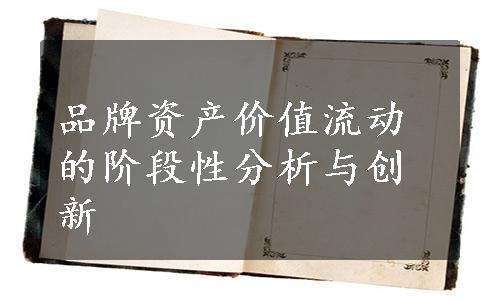 品牌资产价值流动
的阶段性分析与创
新